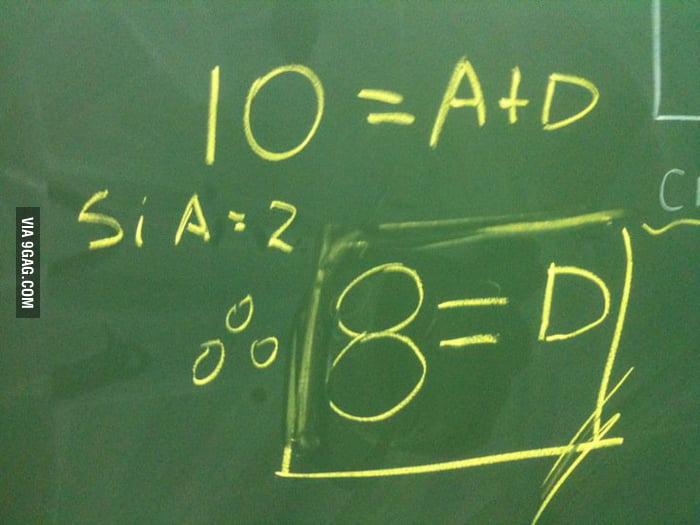 10 = A+D
Si A = 2
8 = D
VIA 9GAG.COM